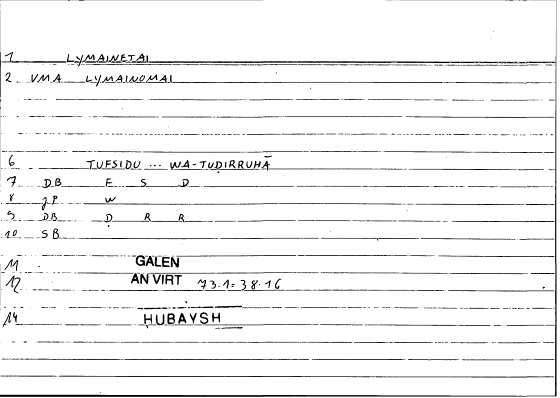 1 LYMAINETAI
2 VMA LYMAINOMAI
6 TUFSIDU ... WA-TUḌIRRUHĀ
7 DB F S D
8 JP W
9 DB Ḍ R R
10 SB
11 GALEN
12 AN VIRT 73.1 = 38.16
14 ḤUBAYSH